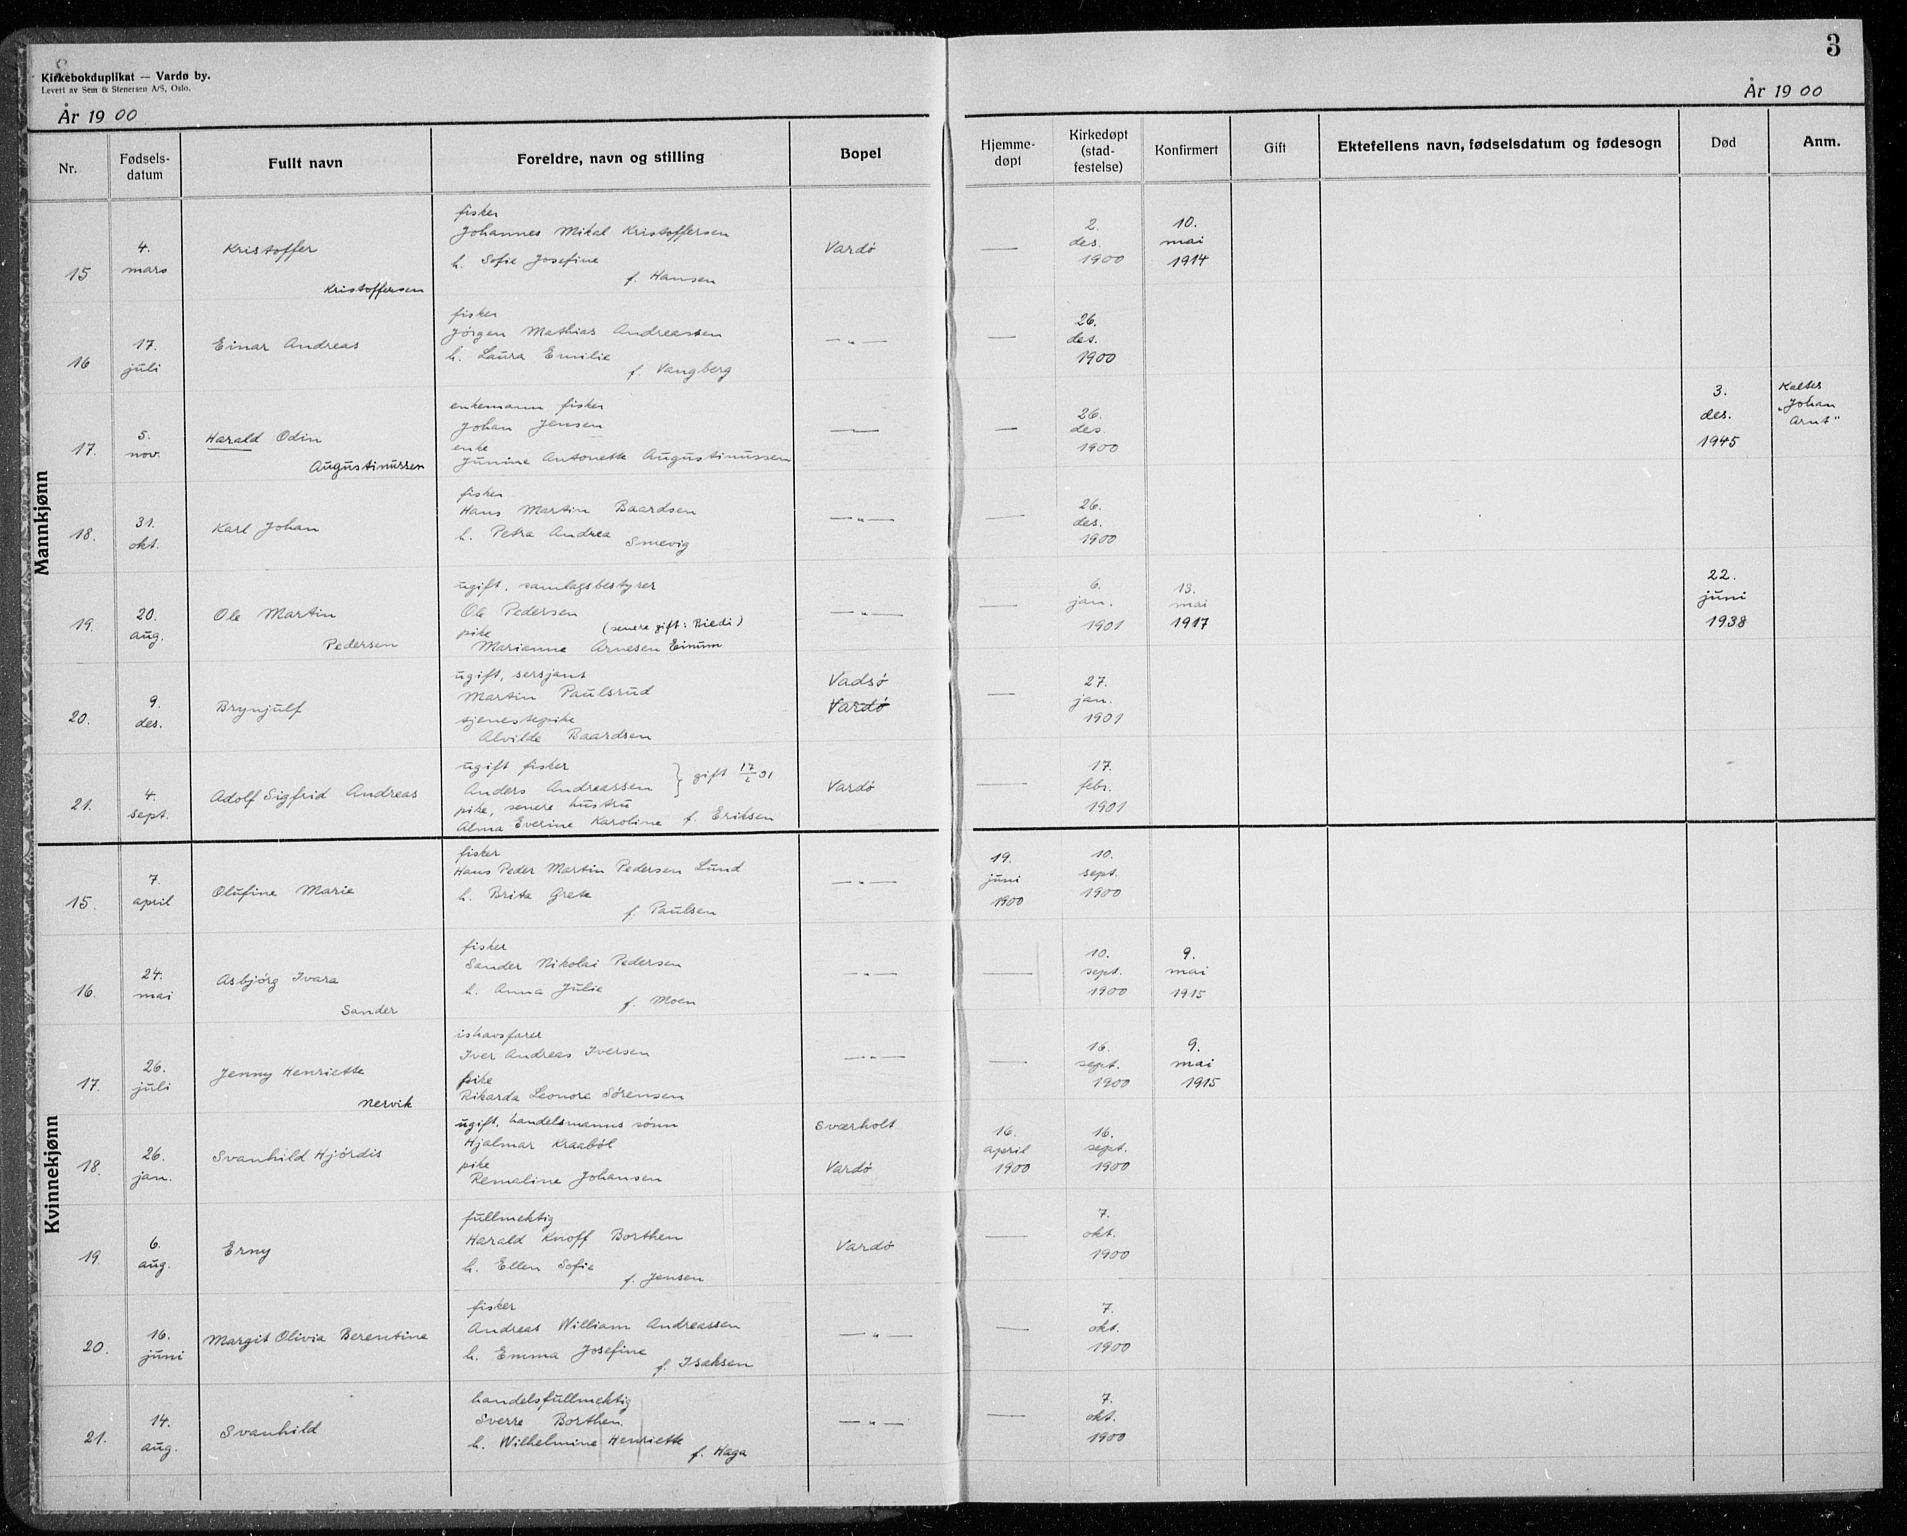 Kirkebokduplikat — Vardø by.
Levert av Sem & Stenersen A/S, Oslo.
3
År 1900
År 1900
Nr.
Fødsels-
datum
Fullt navn
Foreldre, navn og stilling
Bopel
Hjemme-
døpt
Kirkedøpt
(stad-
festelse)
Konfirmert
Gift
Ektefellens navn, fødselsdatum og fødesogn
Død
Anm.
Mannkjønn
15
4.
mars
Kristoffer
Kristoffersen
fisker
Johannes Mikal Kristoffersen
h. Sofie Josefine
f. Hansen
Vardø
—
2.
des.
1900
10.
mai
1914
16
17.
juli
Einar Andreas
fisker
Jørgen Mathias Andreassen
h. Laura Emilie
f. Vangberg
— " —
—
26.
des.
1900
17.
5.
nov.
Harald Odin
Augustinussen
enkemann fisker
Johan Jensen
enke
Junine Antonette Augustinussen
— " —
—
26.
des.
1900
3.
des.
1945
Kalter
"Johan
Arnt"
18.
31.
okt.
Karl Johan
fisker
Hans Martin Baardsen
h. Petra Andrea
Smevig
— " —
—
26.
des.
1900
19.
20.
aug.
Ole Martin
Pedersen
ugift, samlagsbestyrer
Ole Pedersen
pike (senere gift: Riedi)
Marianne Arnesen Einum
— " —
—
6.
jan.
1901
13.
mai
1917
22.
juni
1938
20.
9.
des.
Brynjulf
ugift, sersjant
Martin Paulsrud
tjenestepike
Alvilde Baardsen
Vadsø
Vardø
—
27.
jan.
1901
21.
4.
sept.
Adolf Sigfrid Andreas
ugift fisker
Anders Andreassen } gift 17/2 01
pike, senere hustru
Alma Everine Karoline f. Eriksen
Vardø
—
17.
febr.
1901
Kvinnekjønn
15.
7.
april
Olufine Marie
fisker
Hans Peder Martin Pedersen Lund
h. Brita Grete
f. Paulsen
— " —
19.
juni
1900
10.
sept.
1900
16.
24.
mai
Asbjörg Ivara
Sander
fisker
Sander Nikolai Pedersen
h. Anna Julie
f. Moen
— " —
—
10.
sept.
1900
9.
mai
1915
17.
26.
juli
Jenny Henriette
Nervik
ishavsfarer
Iver Andreas Iversen
pike
Rikarda Leonore Sørensen
— " —
—
16.
sept.
1900
9.
mai
1915
18.
26.
jan.
Svanhild Hjördis
ugift, handelsmanns sønn
Hjalmar Kraaböl
pike
Remaline Johansen
Sværholt
Vardø
16.
april
1900
16.
sept.
1900
19.
6.
aug.
Erny
fullmektig
Harald Knoff Borthen
h. Ellen Sofie
f. Jensen
Vardø
—
7.
okt.
1900
20.
16.
juni
Margit Olivia Berentine
fisker
Andreas William Andreassen
h. Emma Josefine
f. Isaksen
— " —
—
7.
okt.
1900
21.
14.
aug.
Svanhild
handelsfullmektig
Sverre Borthen
h. Wilhelmine Henriette
f. Haga
— " —
—
7.
okt.
1900